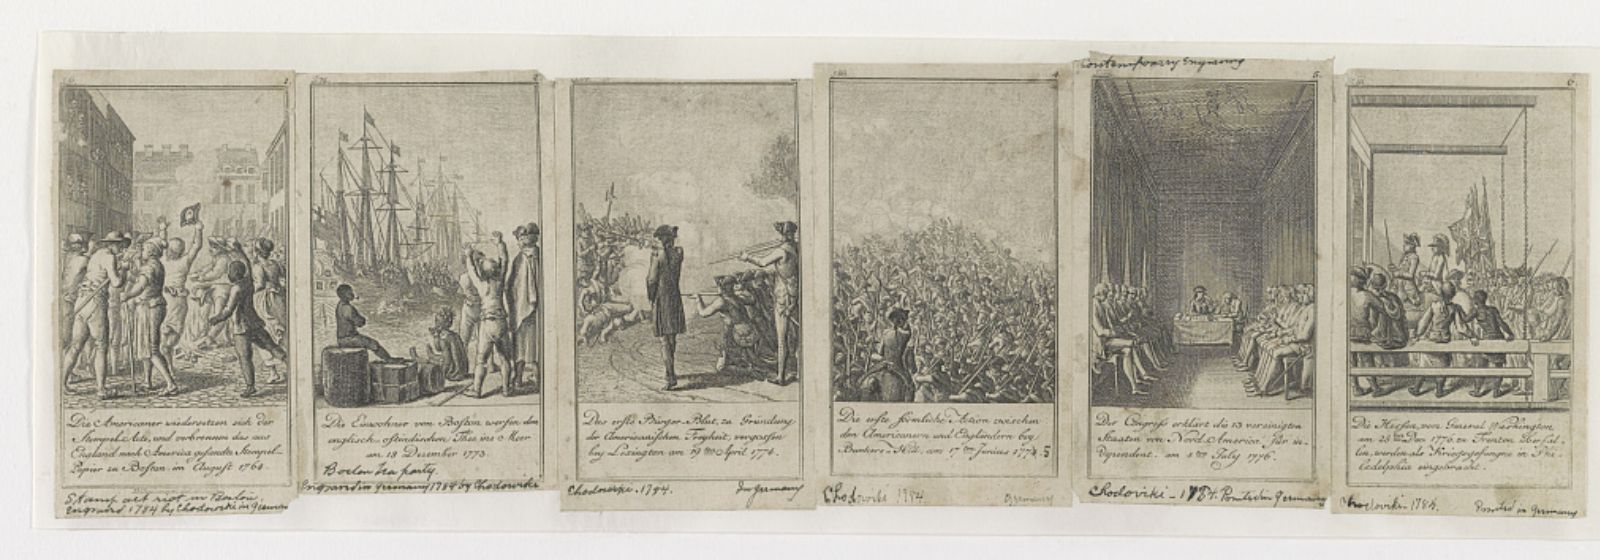 1.
Die Americaner wiedersetzen sich der
Stempel-Acte, und verbrennen das aus
England nach America gesandte Stempel-
Papier zu Boston. im August 1764.
Stamp act riot in Boston.
Engraved 1784 by Chodowiki in German
2.
Die Einwohner von Boston werfen den
englisch-ostindischen Thee ins Meer
am 18 December 1773.
Boston Tea party.
Engraved in Germany 1784 by Chodowiki
Das erste Bürger Blut, zu Gründung
der Americanischen Freyheit, vergossen
bey Lexington am 19ten April 1774.
Chodowiki - 1784.
In Germany
4
Die erste förmliche Action zwischen
den Americanern und Engländern bey
Bunkers-Hill, am 17ten Junius 1774.5
Chodowiki 1784
Germany
Contemporary Engraving
5.
Der Congress erklärt die 13 vereinigten
Staaten von Nord-America für in-
dependent. am 4ten July 1776.
Chodoviki - 1784. Printed in Germany
6.
Die Hessen, vom General Washington
am 25ten Dec. 1776. zu Trenton überfal-
len, werden als Kriegsgefangne in Phi-
ladelphia eingebracht.
Chodoviki - 1784.
Printed in Germany